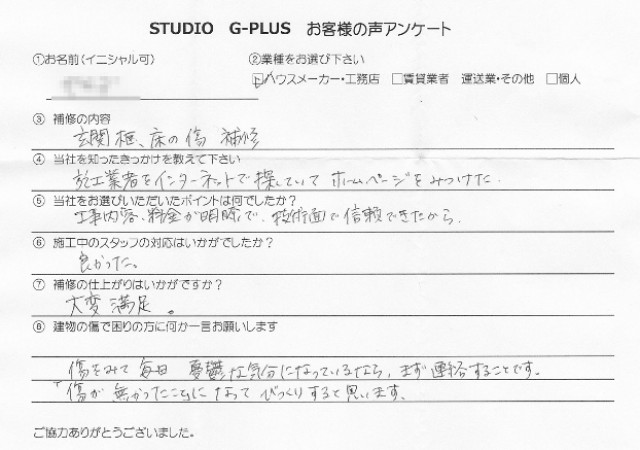 STUDIO G-PLUS お客様の声アンケート
①お名前(イニシャル可) ②業種をお選び下さい
☑ハウスメーカー・工務店 □賃貸業者 運送業・その他 □個人
③ 補修の内容
玄関框、床の傷 補修
④ 当社を知ったきっかけを教えて下さい
施工業者をインターネットで探していて ホームページをみつけた。
⑤ 当社をお選びいただいたポイントは何でしたか？
工事内容、料金が明瞭で、技術面で信頼できたから。
⑥ 施工中のスタッフの対応はいかがでしたか？
良かった。
⑦ 補修の仕上がりはいかがですか？
大変満足。
⑧ 建物の傷で困りの方に何か一言お願いします
傷をみて毎日 憂鬱な気分になっているなら、まず連絡することです。
傷が 無かったことになって びっくりすると思います。
ご協力ありがとうございました。